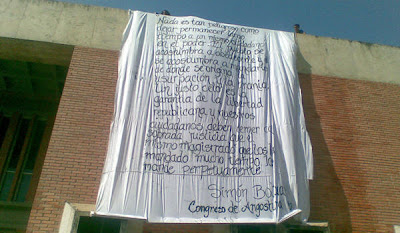 Nada es tan peligroso como
dejar permanecer largo
tiempo a un mismo
el poder. El
acostumbra a obedecerle y
se acostumbra a mandarlo
de donde se origina
usurpación y la tiranía
Un justo celo es la
garantía de la libertad
republicana y nuestros
ciudadanos deben temer con
sobrada justicia que el
mismo magistrado que los ha
mandado mucho tiempo los
mande perpetuamente.
Simón Bolívar
Congreso de Angostura